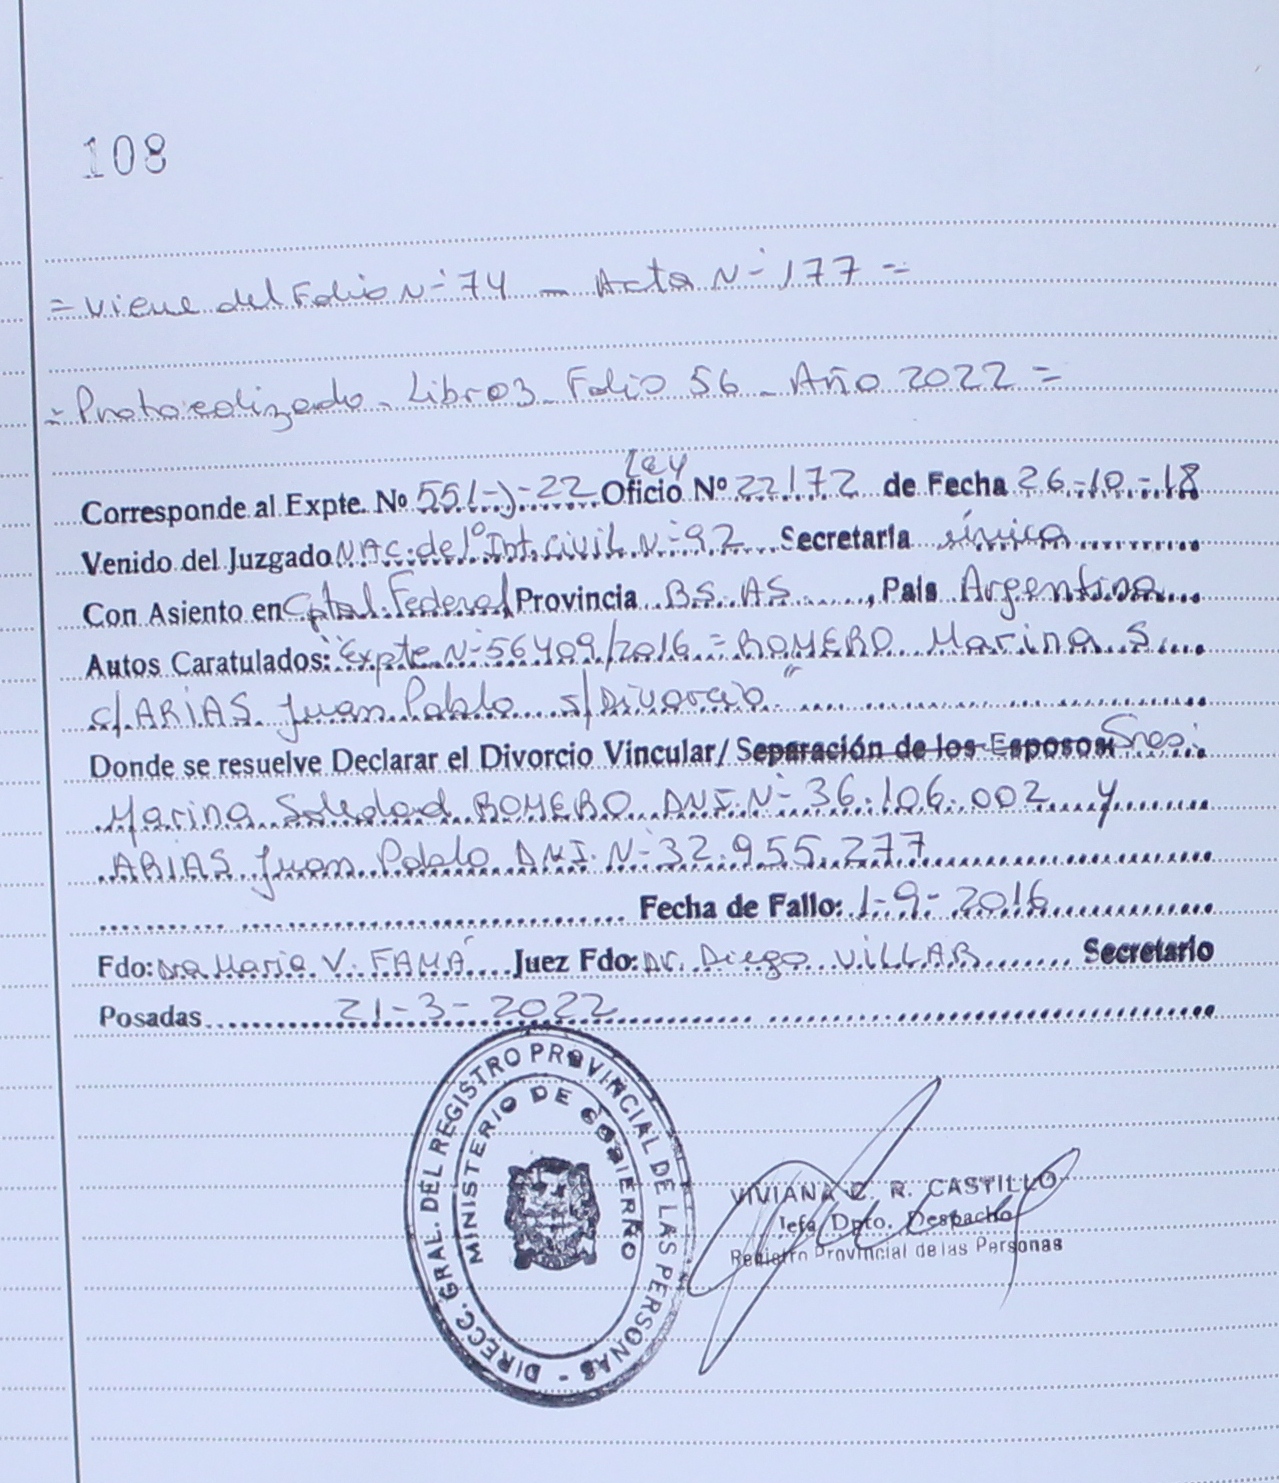 108
= Viene del Folio N- 74 - Acta N- 177 =
= Protocolizado - Libro 3 - Folio 56 - Año 2022 =
Ley
Corresponde al Expte. Nº 551-J-22 Oficio Nº 22.172 de Fecha 26-10-18
Venido del Juzgado NAC. de 1º Inst. Civil N- 92 Secretaria única
Con Asiento en Cptal. Federal, Provincia BS. AS. , Pais Argentina
Autos Caratulados: "Expte N- 56409/2016 = ROMERO Marina S.
c/ ARIAS Juan Pablo s/ Divorcio"
Donde se resuelve Declarar el Divorcio Vincular/ Separación de los Esposos: Sres:
Marina Soledad ROMERO DNI. N- 36.106.002 y
ARIAS Juan Pablo DNI. N- 32.955.277
Fecha de Fallo: 1-9-2016
Fdo: Dra Maria V. FAMÁ Juez Fdo: Dr. Diego VILLAR Secretario
Posadas 21-3-2022
DIRECC. GRAL. DEL REGISTRO PROVINCIAL DE LAS PERSONAS -
MINISTERIO DE GOBIERNO
VIVIANA C. R. CASTILLO
Jefa Dpto. Despacho
Registro Provincial de las Personas